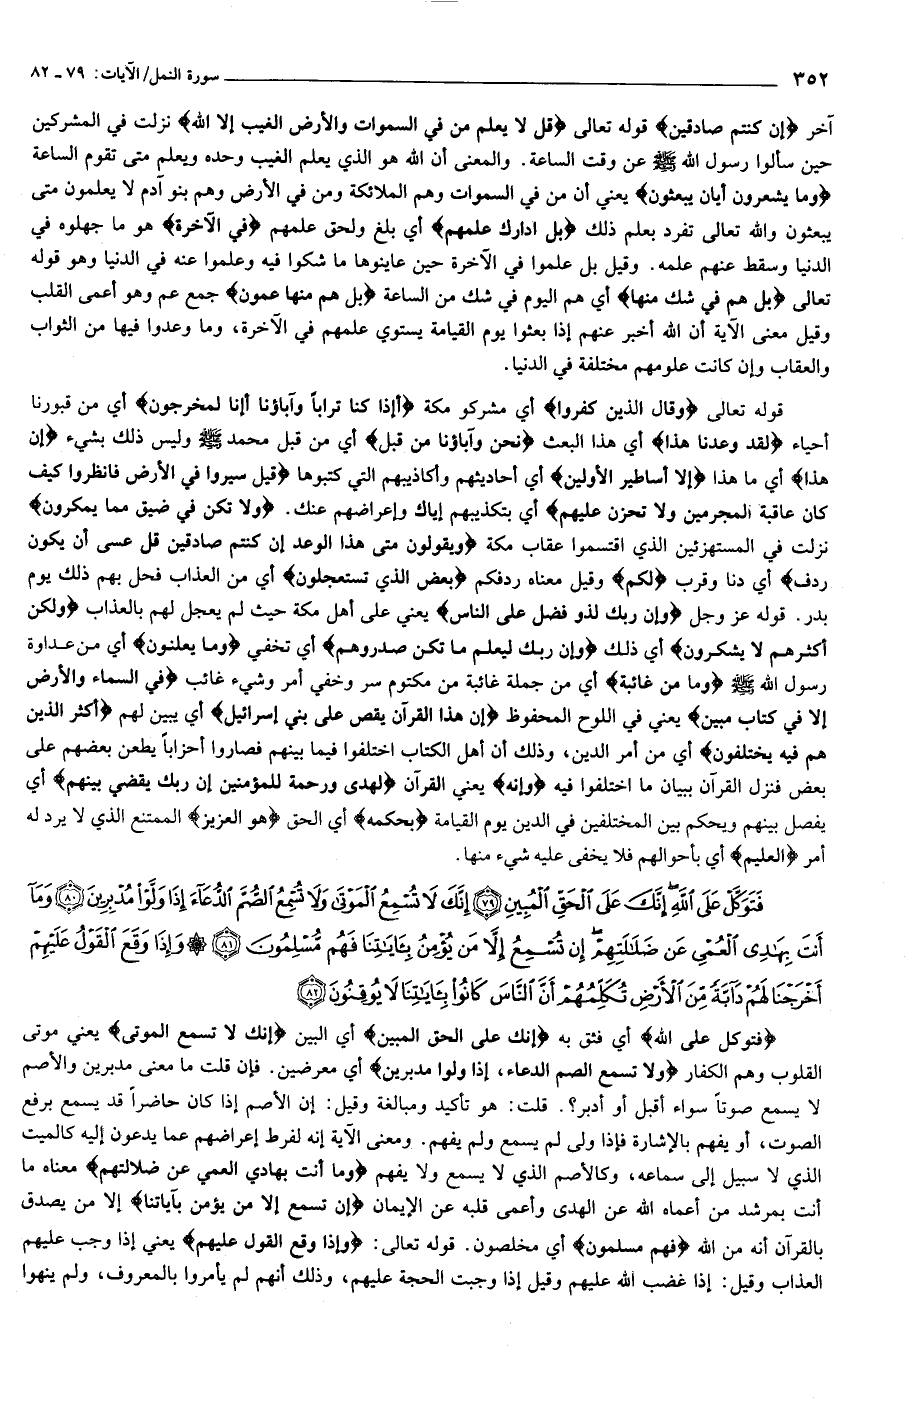 ٣٥٢ سورة النمل/ الآيات: ٧٩ ـ ٨٢
آخر ﴿إن كنتم صادقين﴾ قوله تعالى ﴿قل لا يعلم من في السموات والأرض الغيب إلا الله﴾ نزلت في المشركين
حين سألوا رسول الله ﷺ عن وقت الساعة. والمعنى أن الله هو الذي يعلم الغيب وحده ويعلم متى تقوم الساعة
﴿وما يشعرون أيان يبعثون﴾ يعني أن من في السموات وهم الملائكة ومن في الأرض وهم بنو آدم لا يعلمون متى
يبعثون والله تعالى تفرد بعلم ذلك ﴿بل ادارك علمهم﴾ أي بلغ ولحق علمهم ﴿في الآخرة﴾ هو ما جهلوه في
الدنيا وسقط عنهم علمه. وقيل بل علموا في الآخرة حين عاينوها ما شكوا فيه وعلموا عنه في الدنيا وهو قوله
تعالى ﴿بل هم في شك منها﴾ أي هم اليوم في شك من الساعة ﴿بل هم منها عمون﴾ جمع عم وهو أعمى القلب
وقيل معنى الآية أن الله أخبر عنهم إذا بعثوا يوم القيامة يستوي علمهم في الآخرة، وما وعدوا فيها من الثواب
والعقاب وإن كانت علومهم مختلفة في الدنيا.
قوله تعالى ﴿وقال الذين كفروا﴾ أي مشركو مكة ﴿أإذا كنا تراباً وآباؤنا أإنا لمخرجون﴾ أي من قبورنا
أحياء ﴿لقد وعدنا هذا﴾ أي هذا البعث ﴿نحن وآباؤنا من قبل﴾ أي من قبل محمد ﷺ وليس ذلك بشيء ﴿إن
هذا﴾ أي ما هذا ﴿إلا أساطير الأولين﴾ أي أحاديثهم وأكاذيبهم التي كتبوها ﴿قيل سيروا في الأرض فانظروا كيف
كان عاقبة المجرمين ولا تحزن عليهم﴾ أي بتكذيبهم إياك وإعراضهم عنك. ﴿ولا تكن في ضيق مما يمكرون﴾
نزلت في المستهزئين الذي اقتسموا عقاب مكة ﴿ويقولون متى هذا الوعد إن كنتم صادقين قل عسى أن يكون
ردف﴾ أي دنا وقرب ﴿لكم﴾ وقيل معناه ردفكم ﴿بعض الذي تستعجلون﴾ أي من العذاب فحل بهم ذلك يوم
بدر. قوله عز وجل ﴿وإن ربك لذو فضل على الناس﴾ يعني على أهل مكة حيث لم يعجل لهم بالعذاب ﴿ولكن
أكثرهم لا يشكرون﴾ أي ذلك ﴿وإن ربك ليعلم ما تكن صدورهم﴾ أي تخفي ﴿وما يعلنون﴾ أي من عداوة
رسول الله ﷺ ﴿وما من غائبة﴾ أي من جملة غائبة من مكتوم سر وخفي أمر وشيء غائب ﴿في السماء والأرض
إلا في كتاب مبين﴾ يعني في اللوح المحفوظ ﴿إن هذا القرآن يقص على بني إسرائيل﴾ أي يبين لهم ﴿أكثر الذين
هم فيه يختلفون﴾ أي من أمر الدين، وذلك أن أهل الكتاب اختلفوا فيما بينهم فصاروا أحزاباً يطعن بعضهم على
بعض فنزل القرآن ببيان ما اختلفوا فيه ﴿وإنه﴾ يعني القرآن ﴿لهدى ورحمة للمؤمنين إن ربك يقضي بينهم﴾ أي
يفصل بينهم ويحكم بين المختلفين في الدين يوم القيامة ﴿بحكمه﴾ أي الحق ﴿هو العزيز﴾ الممتنع الذي لا يرد له
أمر ﴿العليم﴾ أي بأحوالهم فلا يخفى عليه شيء منها.
فَتَوَكَّلْ عَلَى ٱللَّهِ إِنَّكَ عَلَى ٱلْحَقِّ ٱلْمُبِينِ ﴿٧٩﴾ إِنَّكَ لَا تُسْمِعُ ٱلْمَوْتَىٰ وَلَا تُسْمِعُ ٱلصُّمَّ ٱلدُّعَآءَ إِذَا وَلَّوْا۟ مُدْبِرِينَ ﴿٨٠﴾ وَمَآ
أَنتَ بِهَـٰدِى ٱلْعُمْىِ عَن ضَلَـٰلَتِهِمْ إِن تُسْمِعُ إِلَّا مَن يُؤْمِنُ بِـَٔايَـٰتِنَا فَهُم مُّسْلِمُونَ ﴿٨١﴾ ۞ وَإِذَا وَقَعَ ٱلْقَوْلُ عَلَيْهِمْ
أَخْرَجْنَا لَهُمْ دَآبَّةً مِّنَ ٱلْأَرْضِ تُكَلِّمُهُمْ أَنَّ ٱلنَّاسَ كَانُوا۟ بِـَٔايَـٰتِنَا لَا يُوقِنُونَ ﴿٨٢﴾
﴿فتوكل على الله﴾ أي فثق به ﴿إنك على الحق المبين﴾ أي البين ﴿إنك لا تسمع الموتى﴾ يعني موتى
القلوب وهم الكفار ﴿ولا تسمع الصم الدعاء، إذا ولوا مدبرين﴾ أي معرضين. فإن قلت ما معنى مدبرين والأصم
لا يسمع صوتاً سواء أقبل أو أدبر؟. قلت: هو تأكيد ومبالغة وقيل: إن الأصم إذا كان حاضراً قد يسمع برفع
الصوت، أو يفهم بالإشارة فإذا ولى لم يسمع ولم يفهم. ومعنى الآية إنه لفرط إعراضهم عما يدعون إليه كالميت
الذي لا سبيل إلى سماعه، وكالأصم الذي لا يسمع ولا يفهم ﴿وما أنت بهادي العمي عن ضلالتهم﴾ معناه ما
أنت بمرشد من أعماه الله عن الهدى وأعمى قلبه عن الإيمان ﴿إن تسمع إلا من يؤمن بآياتنا﴾ إلا من يصدق
بالقرآن أنه من الله ﴿فهم مسلمون﴾ أي مخلصون. قوله تعالى: ﴿وإذا وقع القول عليهم﴾ يعني إذا وجب عليهم
العذاب وقيل: إذا غضب الله عليهم وقيل إذا وجبت الحجة عليهم، وذلك أنهم لم يأمروا بالمعروف، ولم ينهوا